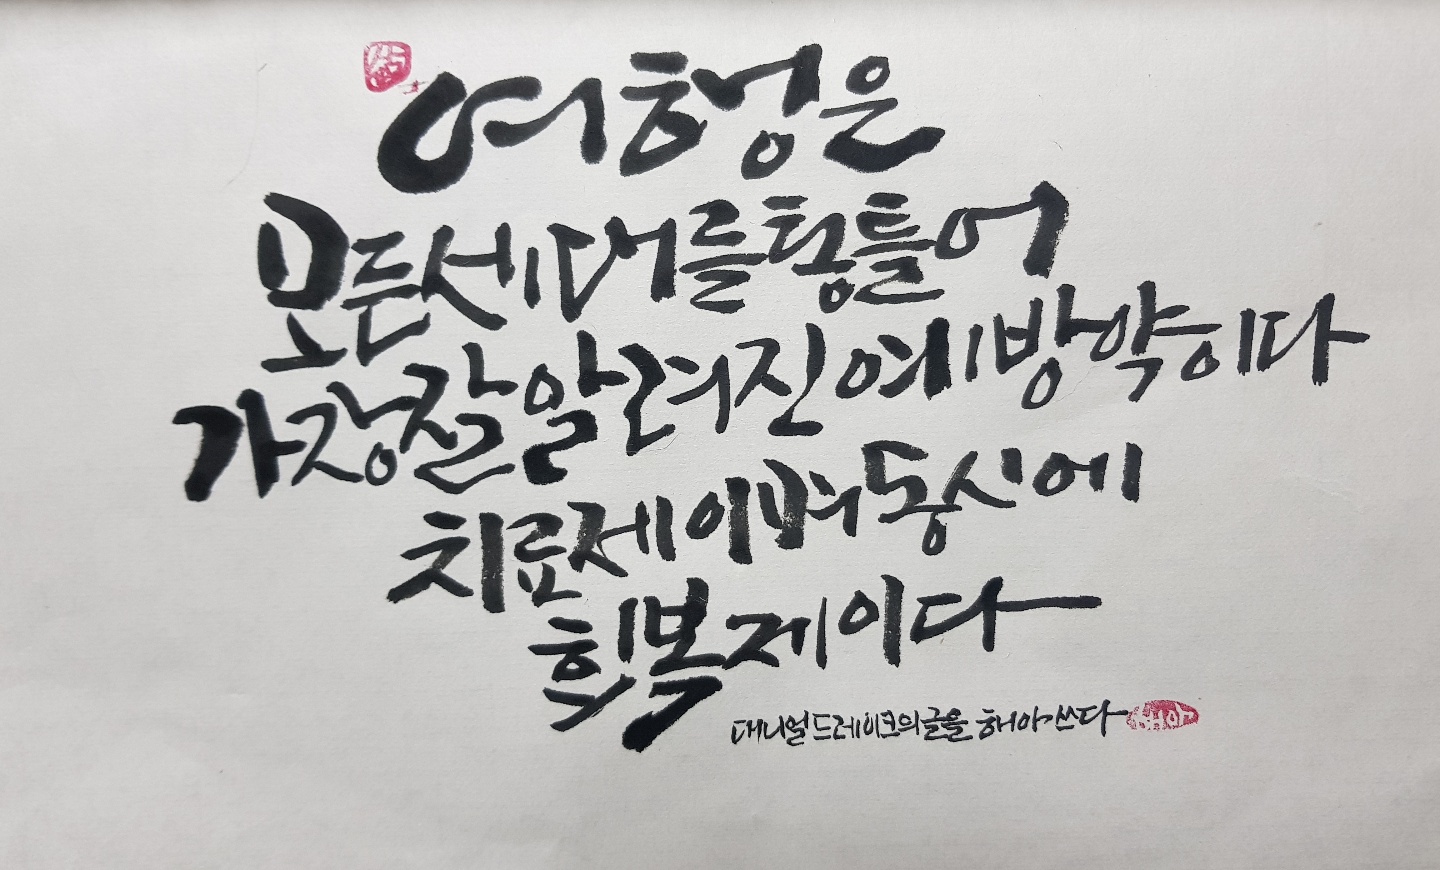 여행은
모든세대를통틀어
가장잘알려진예방약이다
치료제이며동시에
회복제이다
대니얼드레이크의글을 해아쓰다
해아